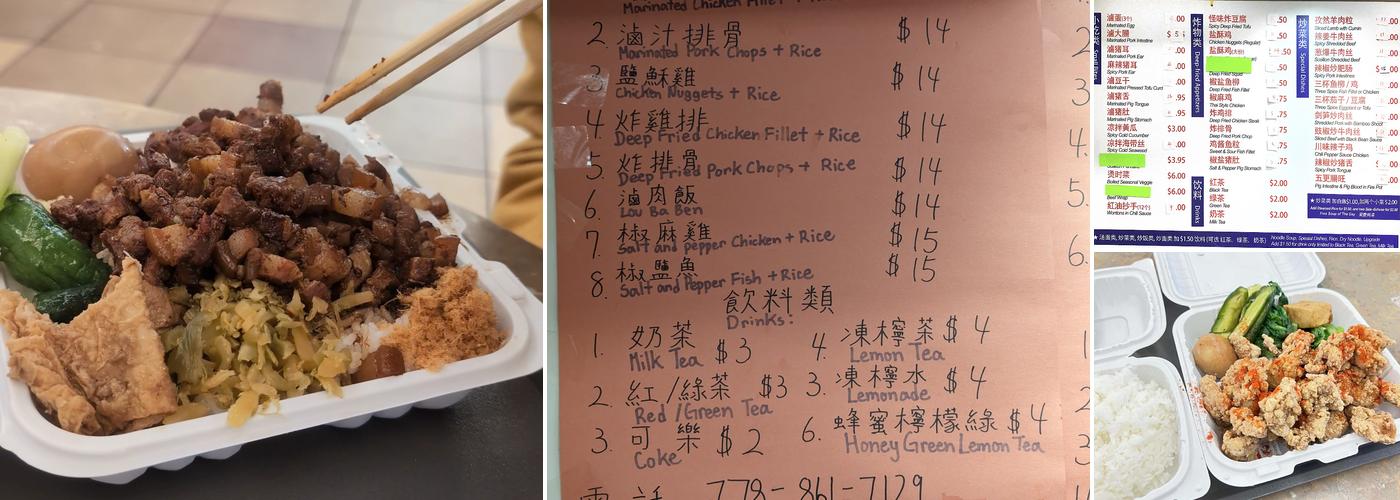 Marinated Chicken Fillet + Rice
2. 滷汁排骨 $14
Marinated Pork Chops + Rice
3. 鹽酥雞 $14
Chicken Nuggets + Rice
4. 炸雞排 $14
Deep Fried Chicken Fillet + Rice
5. 炸排骨 $14
Deep Fried Pork Chops + Rice
6. 滷肉飯 $14
Lou Ba Ben
7. 椒麻雞 $15
Salt and pepper Chicken + Rice
8. 椒鹽魚 $15
Salt and Pepper Fish + Rice
飲料類
Drinks:
1. 奶茶 $3
Milk Tea
2. 紅/綠茶 $3
Red/Green Tea
3. 可樂 $2
Coke
4. 凍檸茶 $4
Lemon Tea
3. 凍檸水 $4
Lemonade
6. 蜂蜜檸檬綠 $4
Honey Green Lemon Tea
電話 778-861-7129
2
3.
4.
5.
6.
小吃类 Small Bites
滷蛋(3个)
Marinated Egg
滷大腸
Marinated Pork Intestine
滷猪耳
Marinated Pork Ear
麻辣猪耳
Spicy Pork Ear
滷豆干
Marinated Pressed Tofu Curd
滷猪舌
Marinated Pig Tongue
滷猪肚
Marinated Pig Stomach
凉拌黄瓜 $3.00
Spicy Cold Cucumber
凉拌海带丝
Spicy Cold Seaweed
$3.95
烫时菜 $6.00
Boiled Seasonal Veggie
$6.00
Beef Wrap
红油抄手(12个)
Wontons in Chili Sauce
炸物类 Deep Fried Appetizers
怪味炸豆腐
Spicy Deep Fried Tofu
盐酥鸡
Chicken Nuggets (Regular)
盐酥鸡
Deep Fried Squid
椒盐鱼柳
Deep Fried Fish Fillet
椒麻鸡
Thai Style Chicken
炸鸡排
Deep Fried Chicken Steak
炸排骨
Deep Fried Pork Chop
鸡酱鱼柳
Sweet & Sour Fish Fillet
椒盐猪肚
Salt & Pepper Pig Stomach
饮料 Drinks
红茶 $2.00
Black Tea
绿茶 $2.00
Green Tea
奶茶 $2.00
Milk Tea
炒菜类 Special Dishes
孜然羊肉粒
Spicy Lamb
辣姜牛肉丝
Spicy Shredded Beef
葱爆牛肉丝
Scallion Shredded Beef
辣椒炒肥肠
Spicy Pork Intestines
三杯鱼柳 / 鸡
Three Spice Fish Fillet or Chicken
三杯茄子 / 豆腐
Three Spice Eggplant or Tofu
剝笋炒肉丝
Shredded Pork with Bamboo Shoot
豉椒炒牛肉丝
Sliced Beef with Black Bean Sauce
川味辣子鸡
Chili Pepper Sauce Chicken
辣椒炒猪舌
Spicy Pork Tongue
五更腸旺
Pig Intestine & Pig Blood in Fire Pot